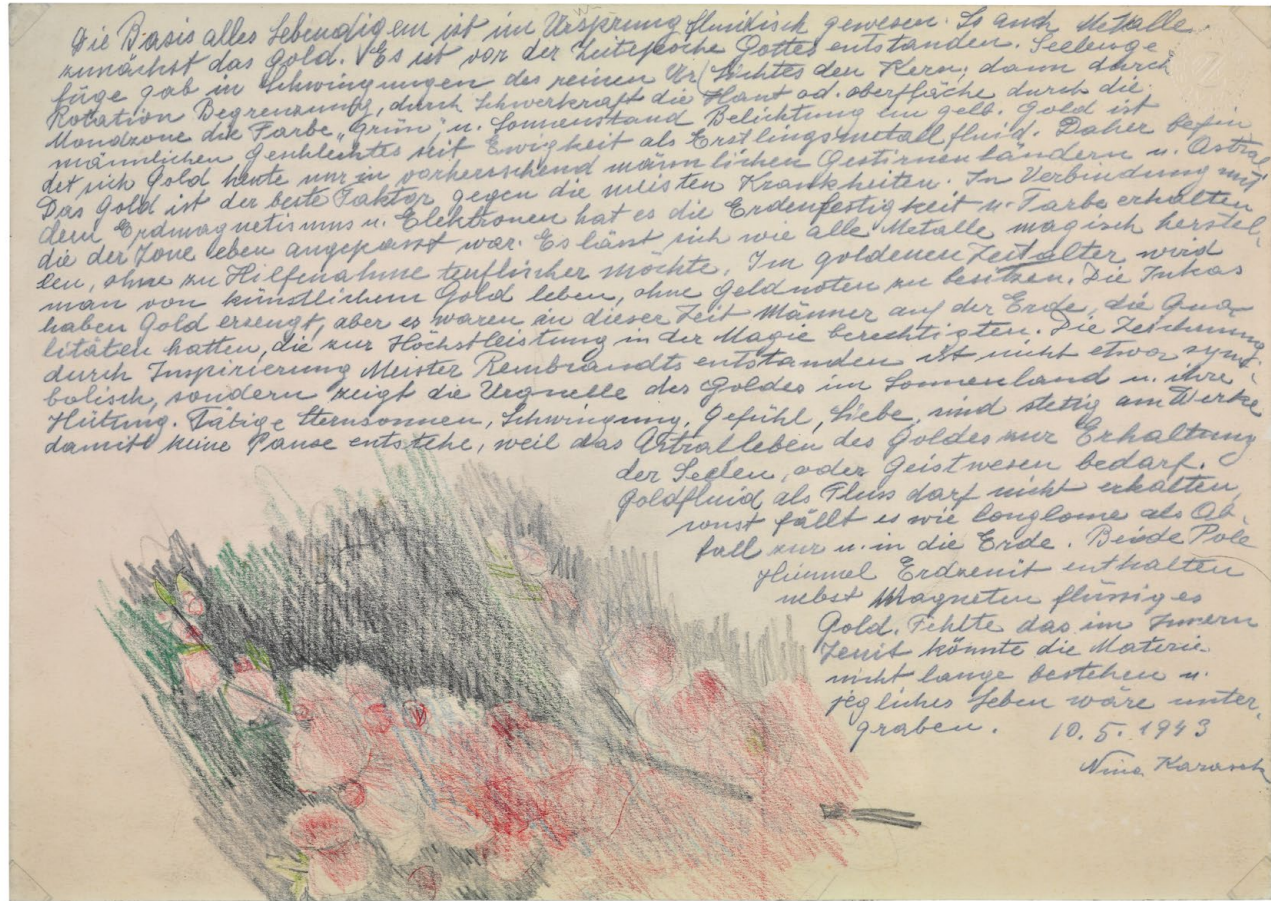 Die Basis alles Lebendigem ist im Ursprung fluidisch gewesen. So auch Metalle
zunächst das Gold. Es ist vor der Zeitepoche Gottes entstanden. Seelenge
füge gab in Schwingungen des reinen Ur Lichtes den Kern; dann durch
Rotation Begrenzung, durch Schwerkraft die Haut od. oberfläche durch die
Mondzone die Farbe „Grün“, u. Sonnenstand Belichtung im gelb. Gold ist
männlichen Geschlechtes seit Ewigkeit als Erstlingsmetall fluid. Daher befin
det sich Gold heute nur in vorherrschend männlichen Gestirnen Ländern u. Astral
Das Gold ist der beste Faktor gegen die meisten Krankheiten. In Verbindung mit
dem Erdmagnetismus u. Elektronen hat es die Erdenfestigkeit u. Farbe erhalten
die der Zone eben angepasst war. Es lässt sich wie alle Metalle magisch herstel-
len, ohne zu Hilfenahme teuflischer Mächte. Im goldenen Zeitalter wird
man von künstlichem Gold leben, ohne Geldnoten zu besitzen. Die Inkas
haben Gold erzeugt, aber es waren in dieser Zeit Männer auf der Erde, die Qua-
litäten hatten, die zur Höchstleistung in der Magie berechtigten. Die Zeichnung
durch Inspirierung Meister Rembrandts entstanden ist nicht etwa sym-
bolisch, sondern zeigt die Urquelle des Goldes im Sonnenland u. ihre
Hütung. Tätige Sternsonnen, Schwingung, Gefühl, Liebe, sind stetig am Werke
damit keine Pause entstehe, weil das Astralleben des Goldes zur Erhaltung
der Seelen, oder Geistwesen bedarf.
Goldfluid als Fluss darf nicht erkalten,
sonst fällt es wie als Ab-
fall zur u. in die Erde. Beide Pole
Himmel Erdzenit enthalten
nebst Magneten flüssiges
Gold. Fehlte das im Innern
Zenit könnte die Materie
nicht lange bestehen u.
jegliches Leben wäre unter-
graben. 10. 5. 1943
Nina Karasek